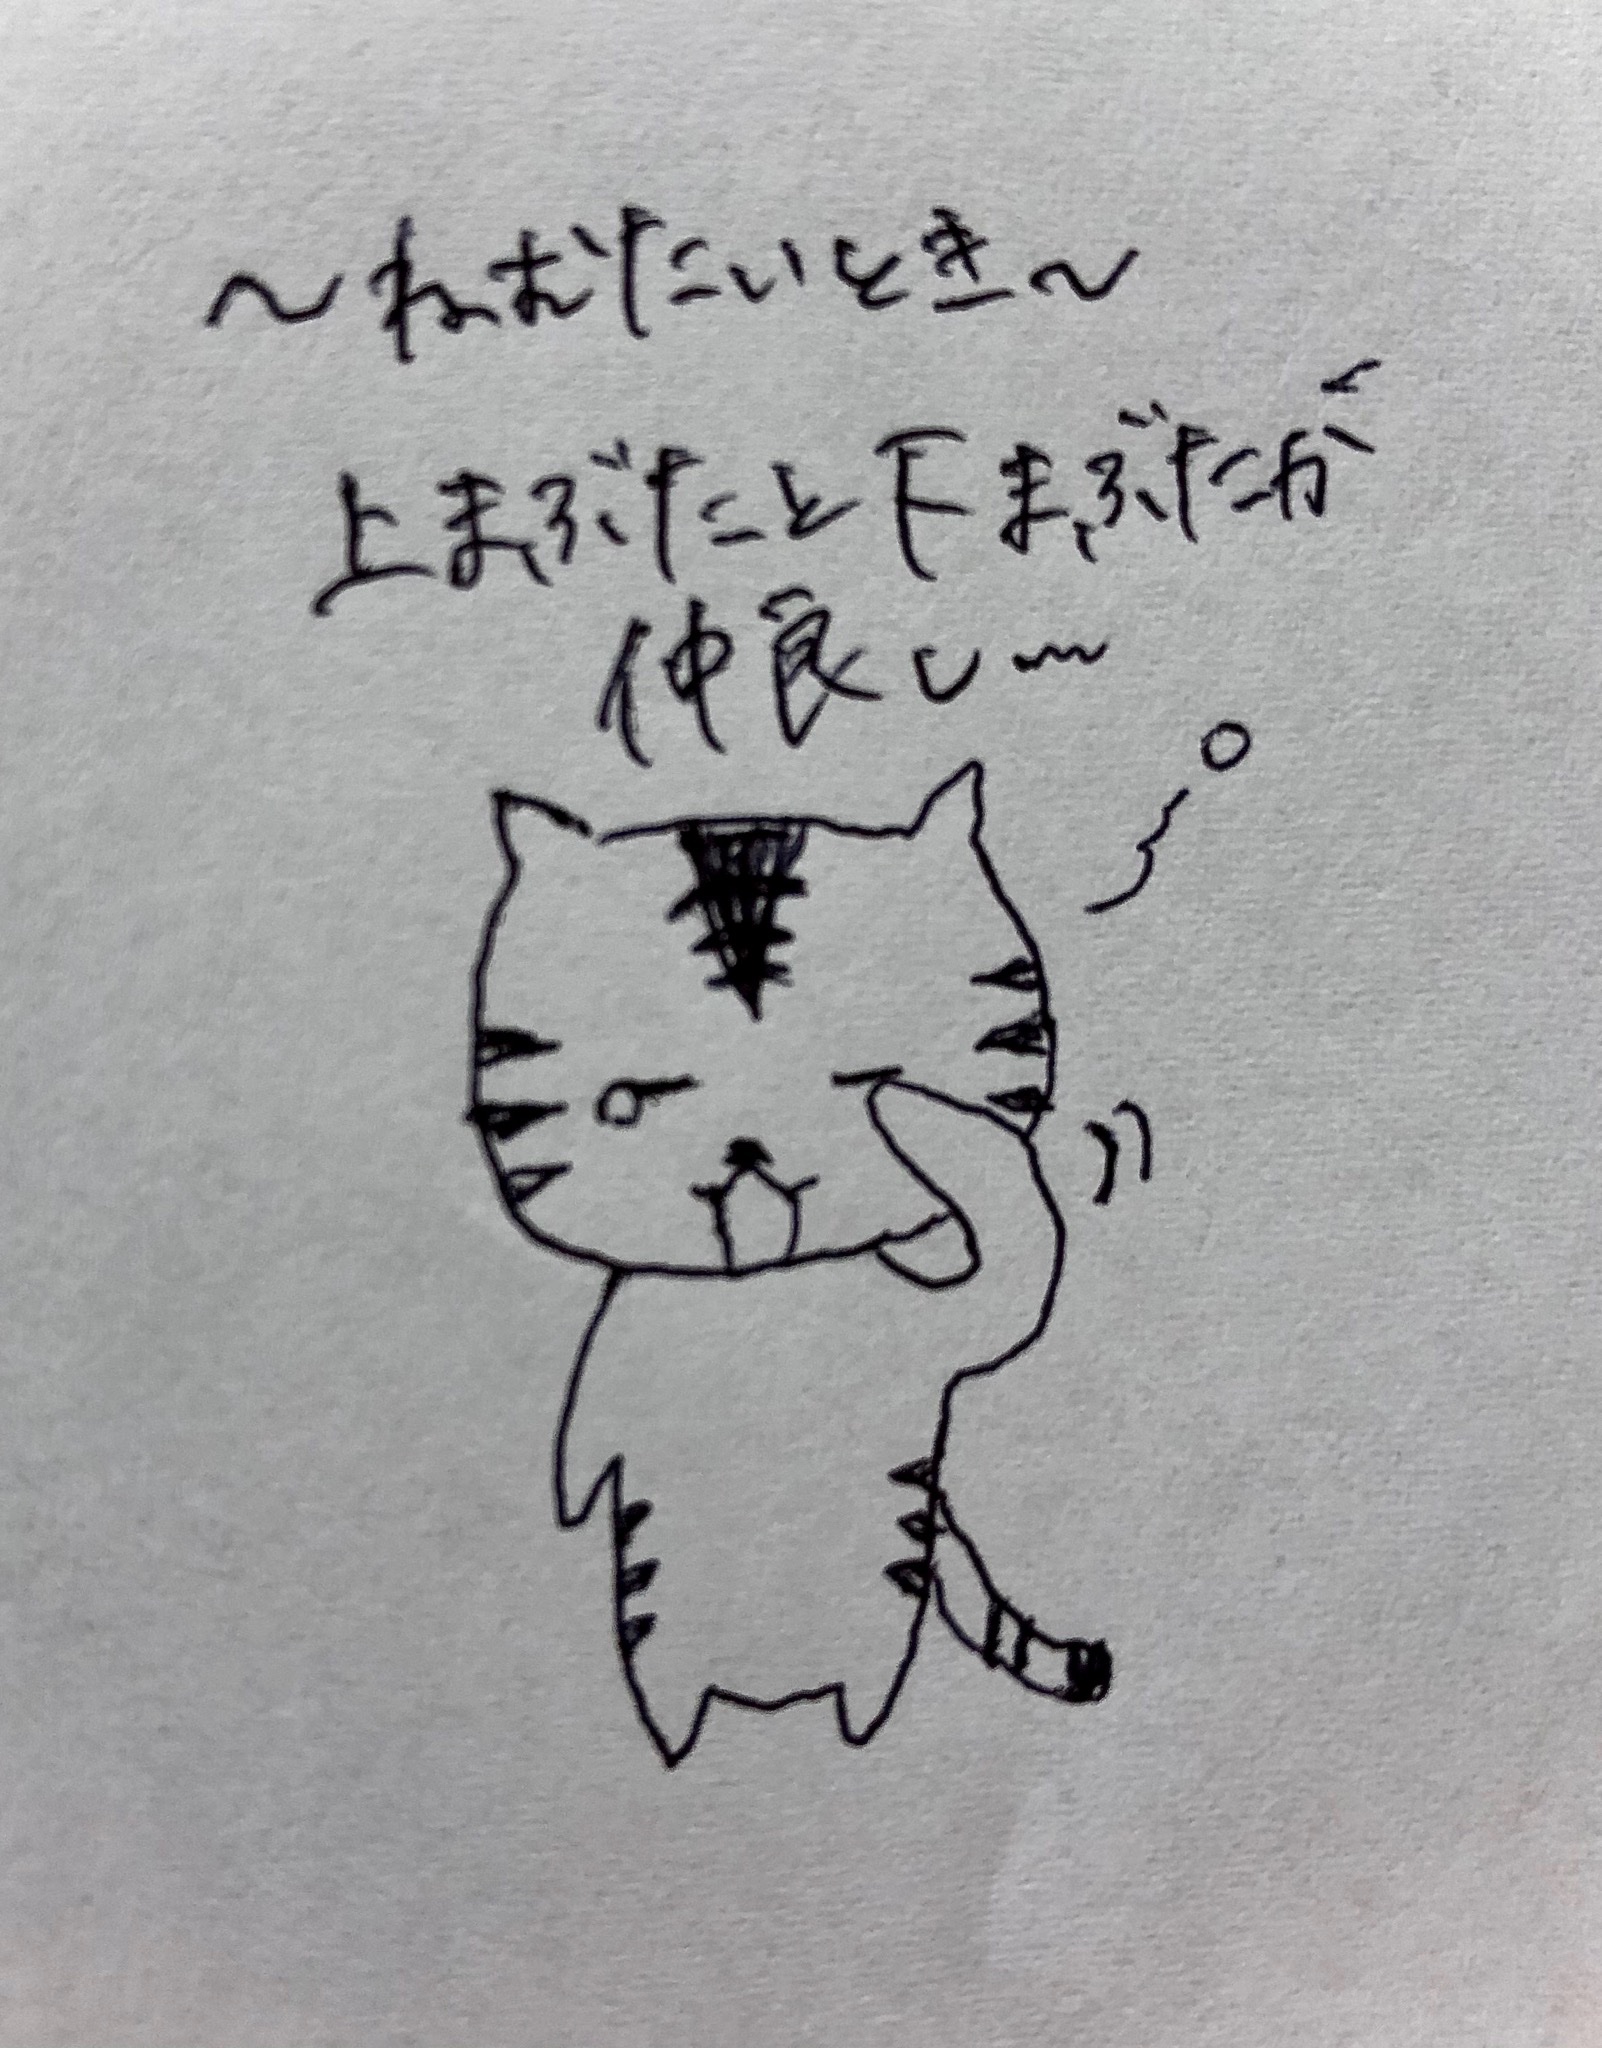 〜ねむたいとき〜
上まぶたと下まぶたが
仲良し〜